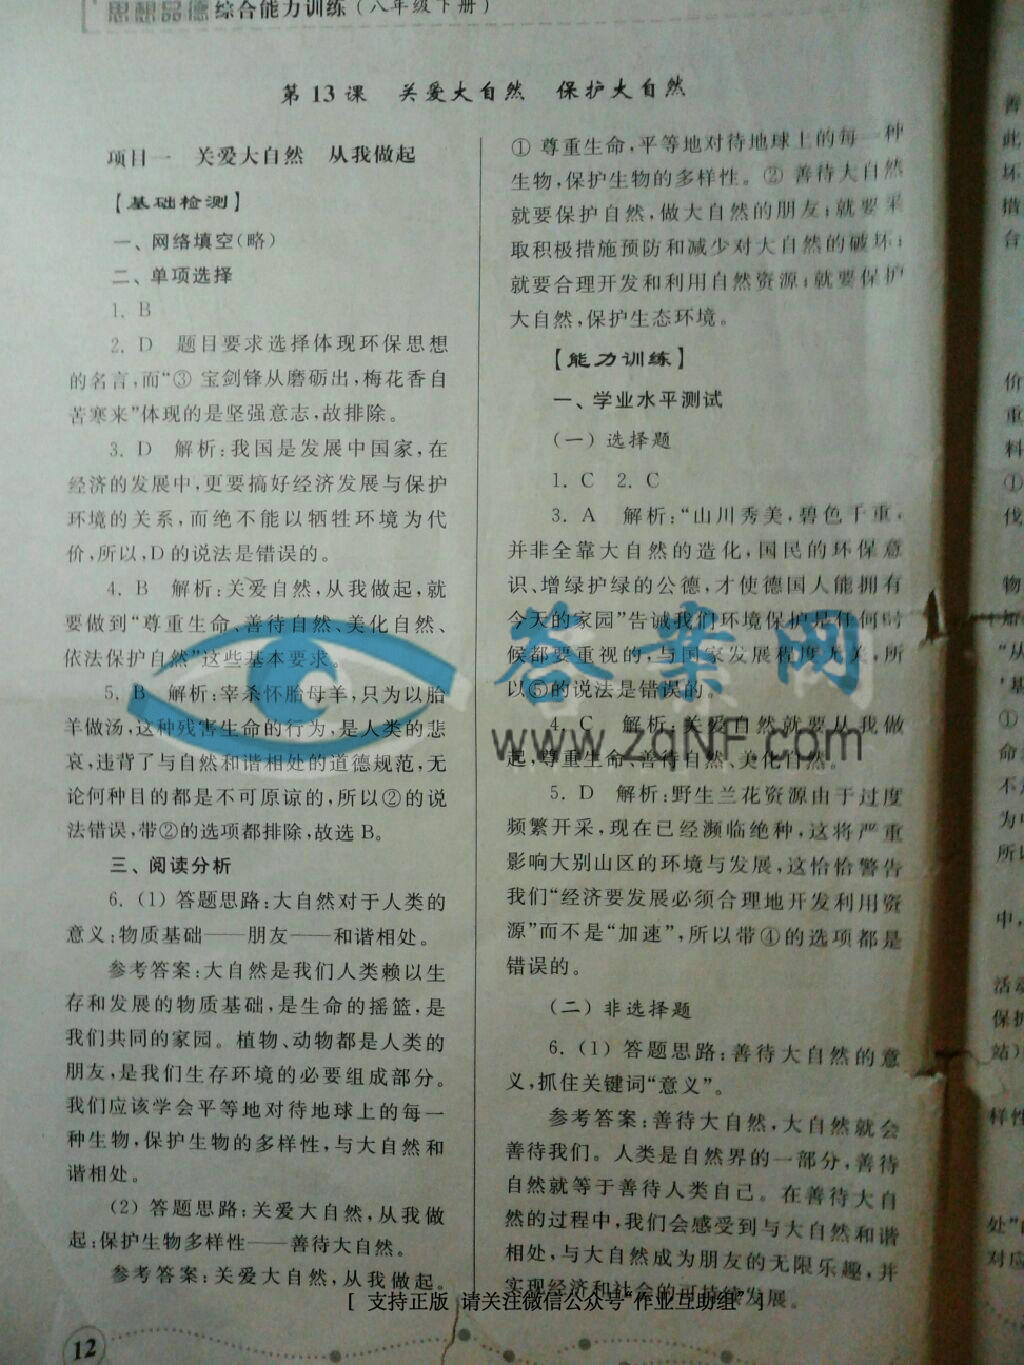 思想品德综合能力训练(八年级下册)
第13课 关爱大自然 保护大自然
项目一 关爱大自然 从我做起
【基础检测】
一、网络填空(略)
二、单项选择
1. B
2. D 题目要求选择体现环保思想
的名言,而“③ 宝剑锋从磨砺出,梅花香自
苦寒来”体现的是坚强意志,故排除。
3. D 解析:我国是发展中国家,在
经济的发展中,更要搞好经济发展与保护
环境的关系,而绝不能以牺牲环境为代
价,所以,D的说法是错误的。
4. B 解析:关爱自然,从我做起,就
要做到“尊重生命、善待自然、美化自然、
依法保护自然”这些基本要求。
5. B 解析:宰杀怀胎母羊,只为以胎
羊做汤,这种残害生命的行为,是人类的悲
哀,违背了与自然和谐相处的道德规范,无
论何种目的都是不可原谅的,所以②的说
法错误,带②的选项都排除,故选B。
三、阅读分析
6.(1)答题思路:大自然对于人类的
意义:物质基础——朋友——和谐相处。
参考答案:大自然是我们人类赖以生
存和发展的物质基础,是生命的摇篮,是
我们共同的家园。植物、动物都是人类的
朋友,是我们生存环境的必要组成部分。
我们应该学会平等地对待地球上的每一
种生物,保护生物的多样性,与大自然和
谐相处。
(2)答题思路:关爱大自然,从我做
起:保护生物多样性——善待大自然。
参考答案:关爱大自然,从我做起。
①尊重生命,平等地对待地球上的每一种
生物,保护生物的多样性。②善待大自然
就要保护自然,做大自然的朋友;就要采
取积极措施预防和减少对大自然的破坏;
就要合理开发和利用自然资源;就要保护
大自然,保护生态环境。
【能力训练】
一、学业水平测试
(一)选择题
1. C 2. C
3. A 解析:“山川秀美,碧色千重,
并非全靠大自然的造化,国民的环保意
识、增绿护绿的公德,才使德国人能拥有
今天的家园”告诫我们环境保护是任何时
候都要重视的,与国家发展程度无关,所
以⑤的说法是错误的。
4. C 解析:关爱自然就要从我做
起,尊重生命、善待自然、美化自然。
5. D 解析:野生兰花资源由于过度
频繁开采,现在已经濒临绝种,这将严重
影响大别山区的环境与发展,这恰恰警告
我们“经济要发展必须合理地开发利用资
源”而不是“加速”,所以带④的选项都是
错误的。
(二)非选择题
6.(1)答题思路:善待大自然的意
义,抓住关键词“意义”。
参考答案:善待大自然,大自然就会
善待我们。人类是自然界的一部分,善待
自然就等于善待人类自己。在善待大自
然的过程中,我们会感受到与大自然和谐
相处,与大自然成为朋友的无限乐趣,并
实现经济和社会的可持续发展。
答案网
www.zqNF.com
[ 支持正版 请关注微信公众号“作业互助组” ]
12